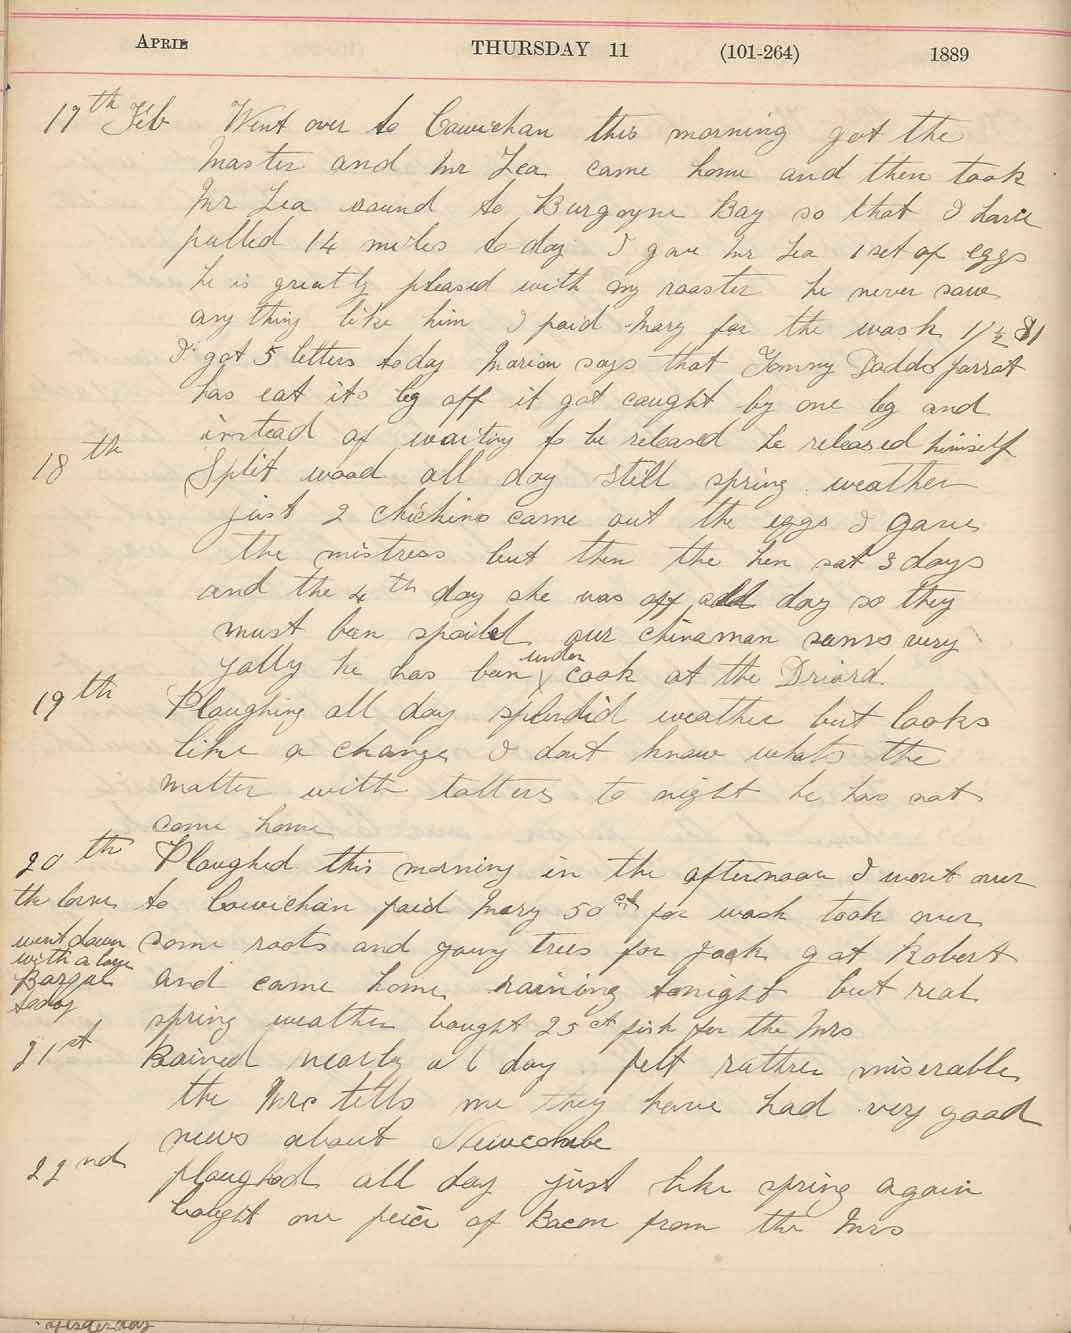 APRIL THURSDAY 11 (101-264) 1889
17th Feb Went over to Cowichan this morning got the
Master and Mr Lea came home and then took
Mr Lea round to Burgoyne Bay so that I have
pulled 14 miles to day I gave Mr Lea 1 set of eggs
he is greatly pleased with my rooster he never saw
any thing like him I paid Mary for the wash 1/½ $1
I got 5 letters today Marion says that Tommy Dodds parrot
has eat its leg off it got caught by one leg and
instead of waiting to be released he released himself
18th Split wood all day still spring weather
just 2 chickins came out the eggs I gave
the mistress but then the hen sat 3 days
and the 4th day she was off all day so they
must ben spoiled our chinaman seems very
jolly he has ben under cook at the Driard
19th Ploughing all day splendid weather but looks
like a change I dont know whats the
matter with tatters to night he has not
come home
20th Ploughed this morning in the afternoon I went over
to Cowichan paid Mary 50ct for wash took over
some roots and young trees for Jack got Robert
and came home raining tonight but real
spring weather bought 25ct fish for the Mrs
the Lorne
went down
with a large
Barque
today
21st Rained nearly all day. felt rather miserable
the Mrs tells me they have had very good
news about Newcombe
22nd ploughed all day just like spring again
bought one peice of Bacon from the Mrs
yesterday